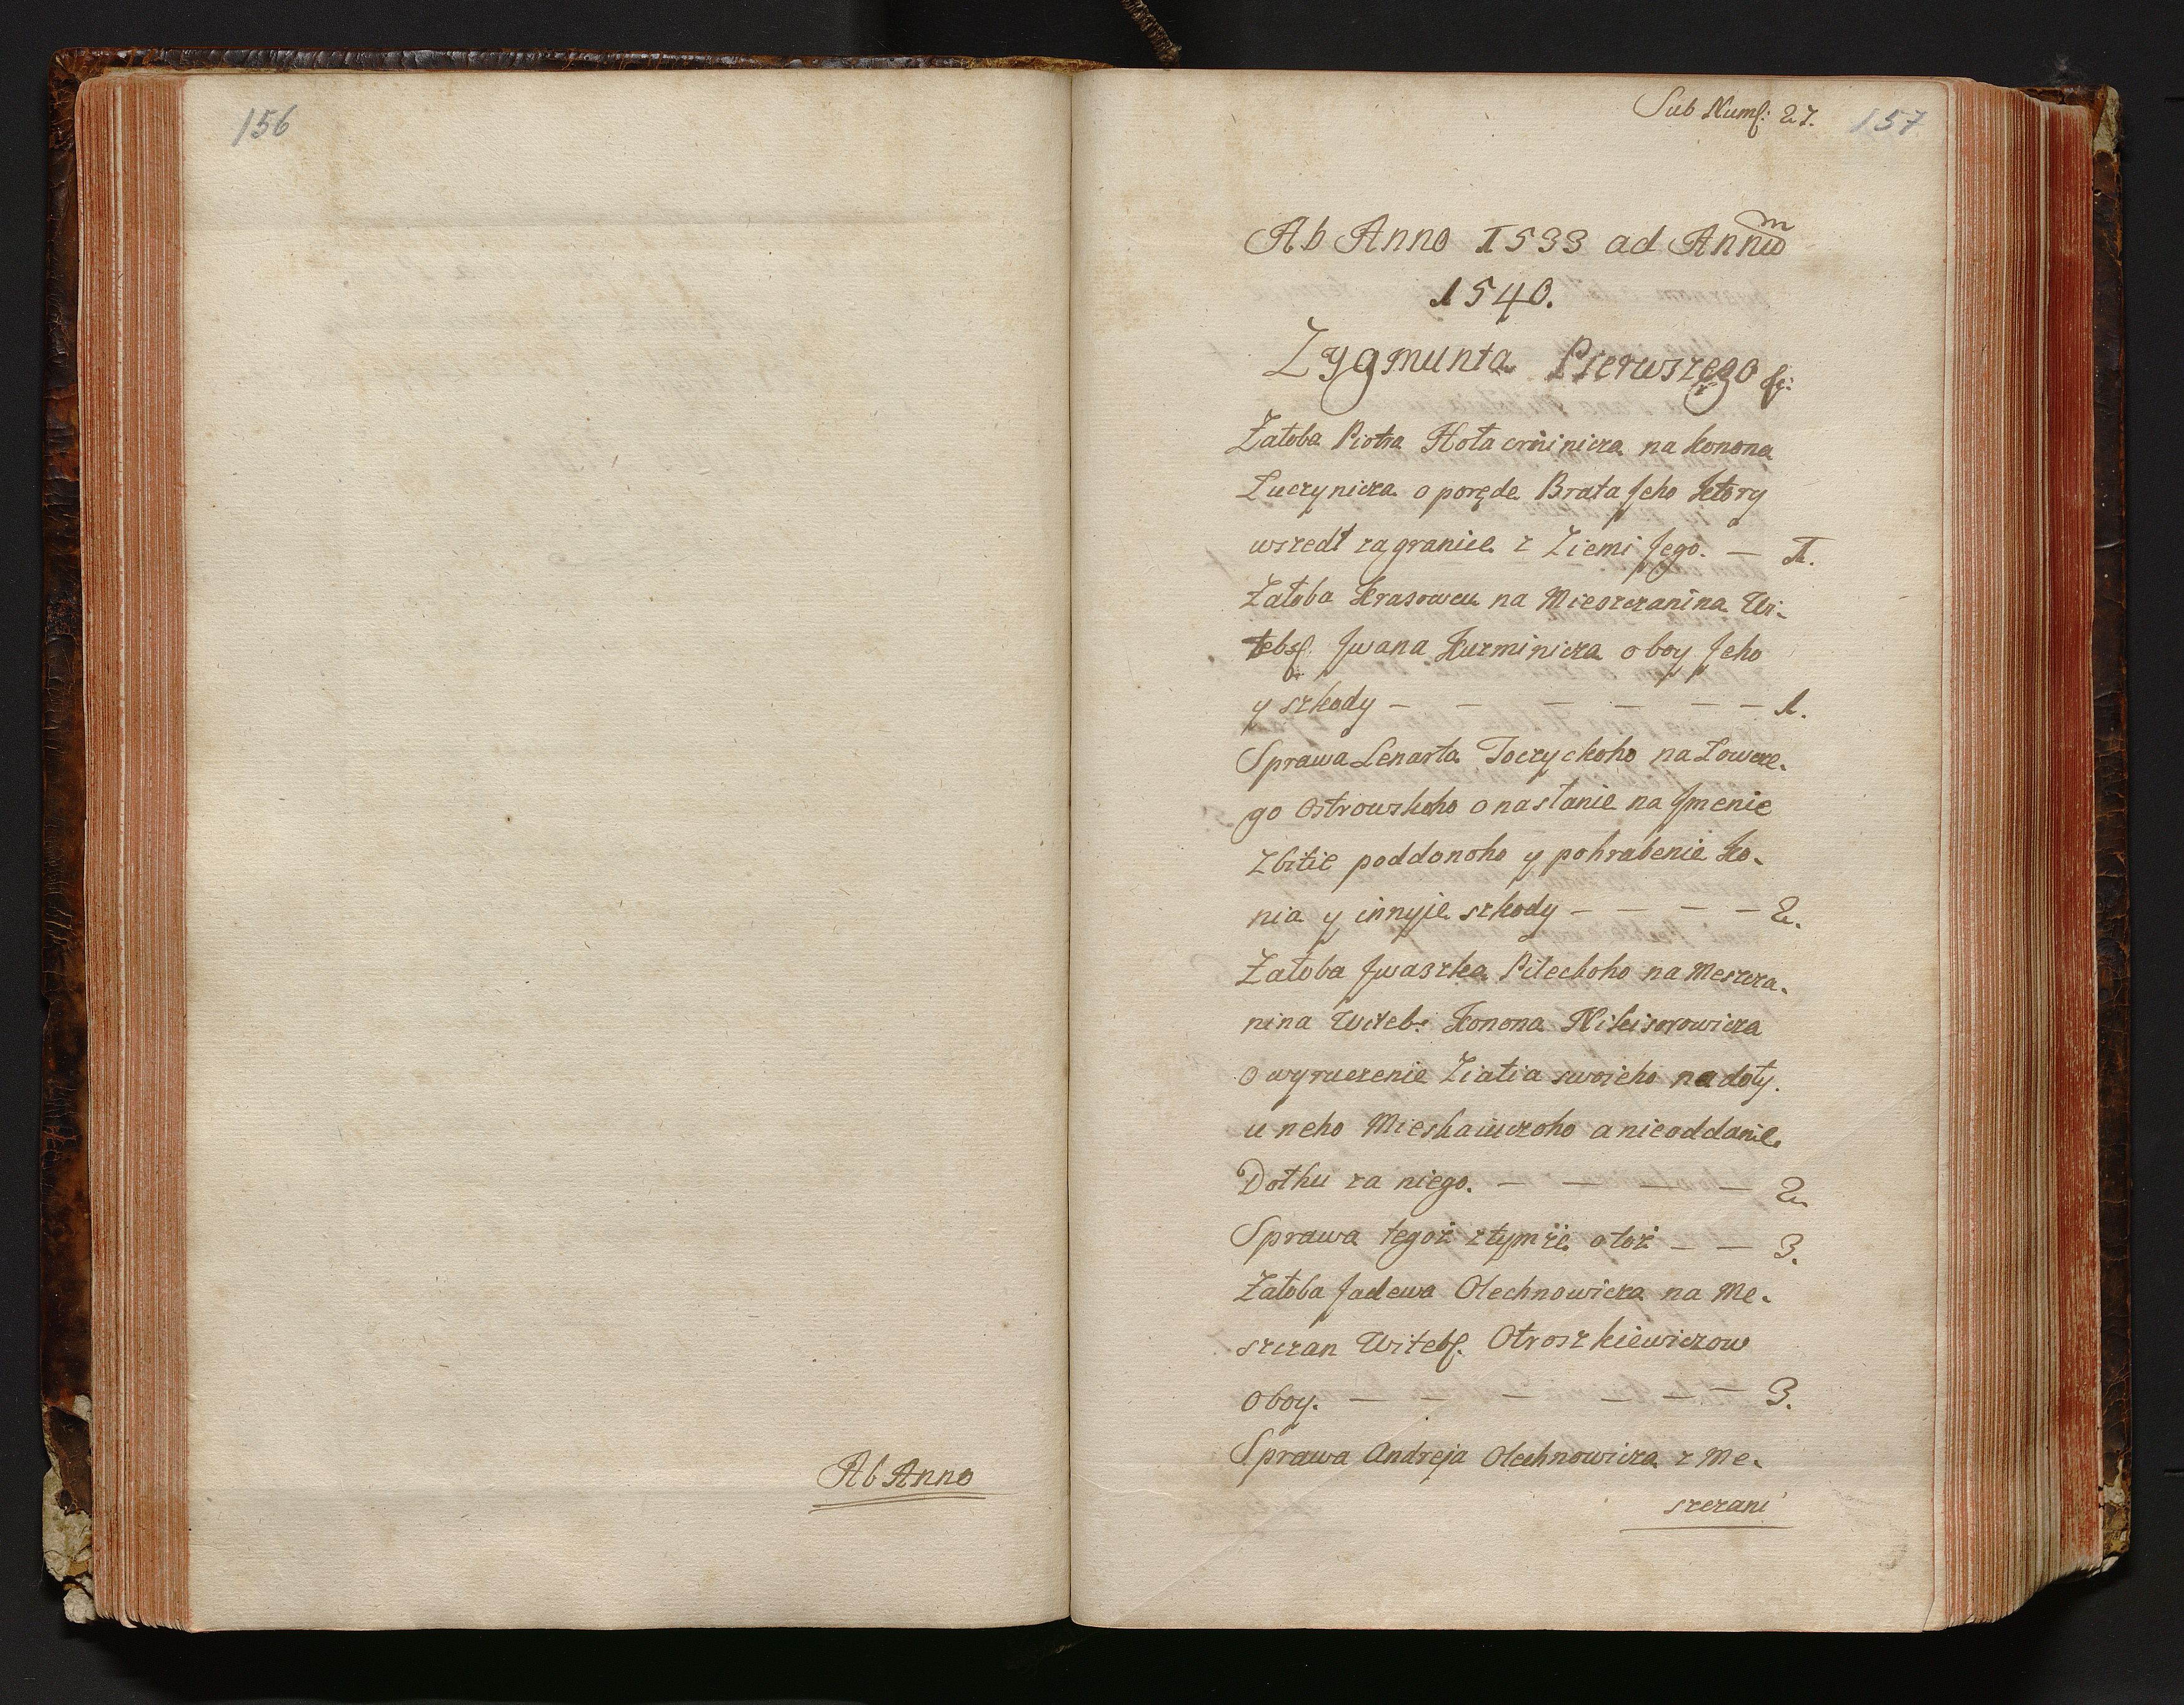 156
Ab Anno
Sub Num: 27. 157
Ab Anno 1533 ad Annum
1540.
Zygmunta Pierwszego
Załoba Piotra na Konona
Łuczynicza o poręde Brata Jeho Ktory
wszedł zagranicę z Ziemi Jego. — 1.
Załoba Krasowcu na Mieszczanina Wi-
tebs: Jwana Kuzminicza o boy Jeho
y szkody — — — — — — 1.
Sprawa Lenarta Toczyckoho na Łowcze-
go Ostrowskoho o nasłanie na Jmenie
Zbitie poddonoho y pohrabenie Ko-
nia y innyje szkody — — — — 2.
Załoba Jwaszka Pileckoho na Meszcza-
nina Witeb: Konona Nikisorowicza
o wyruczenie Ziatia swoieho
u neho a nieoddanie
Dołhu za niego. — — — — 2.
Sprawa tegoż ztymże otoż — — 3.
Załoba Jadewa Olechnowicza na Me-
szczan Witebs. Otroszkiewiczow
o boy. — — — — — — 3.
Sprawa Andreja Olechnowicza z Me-
szczani